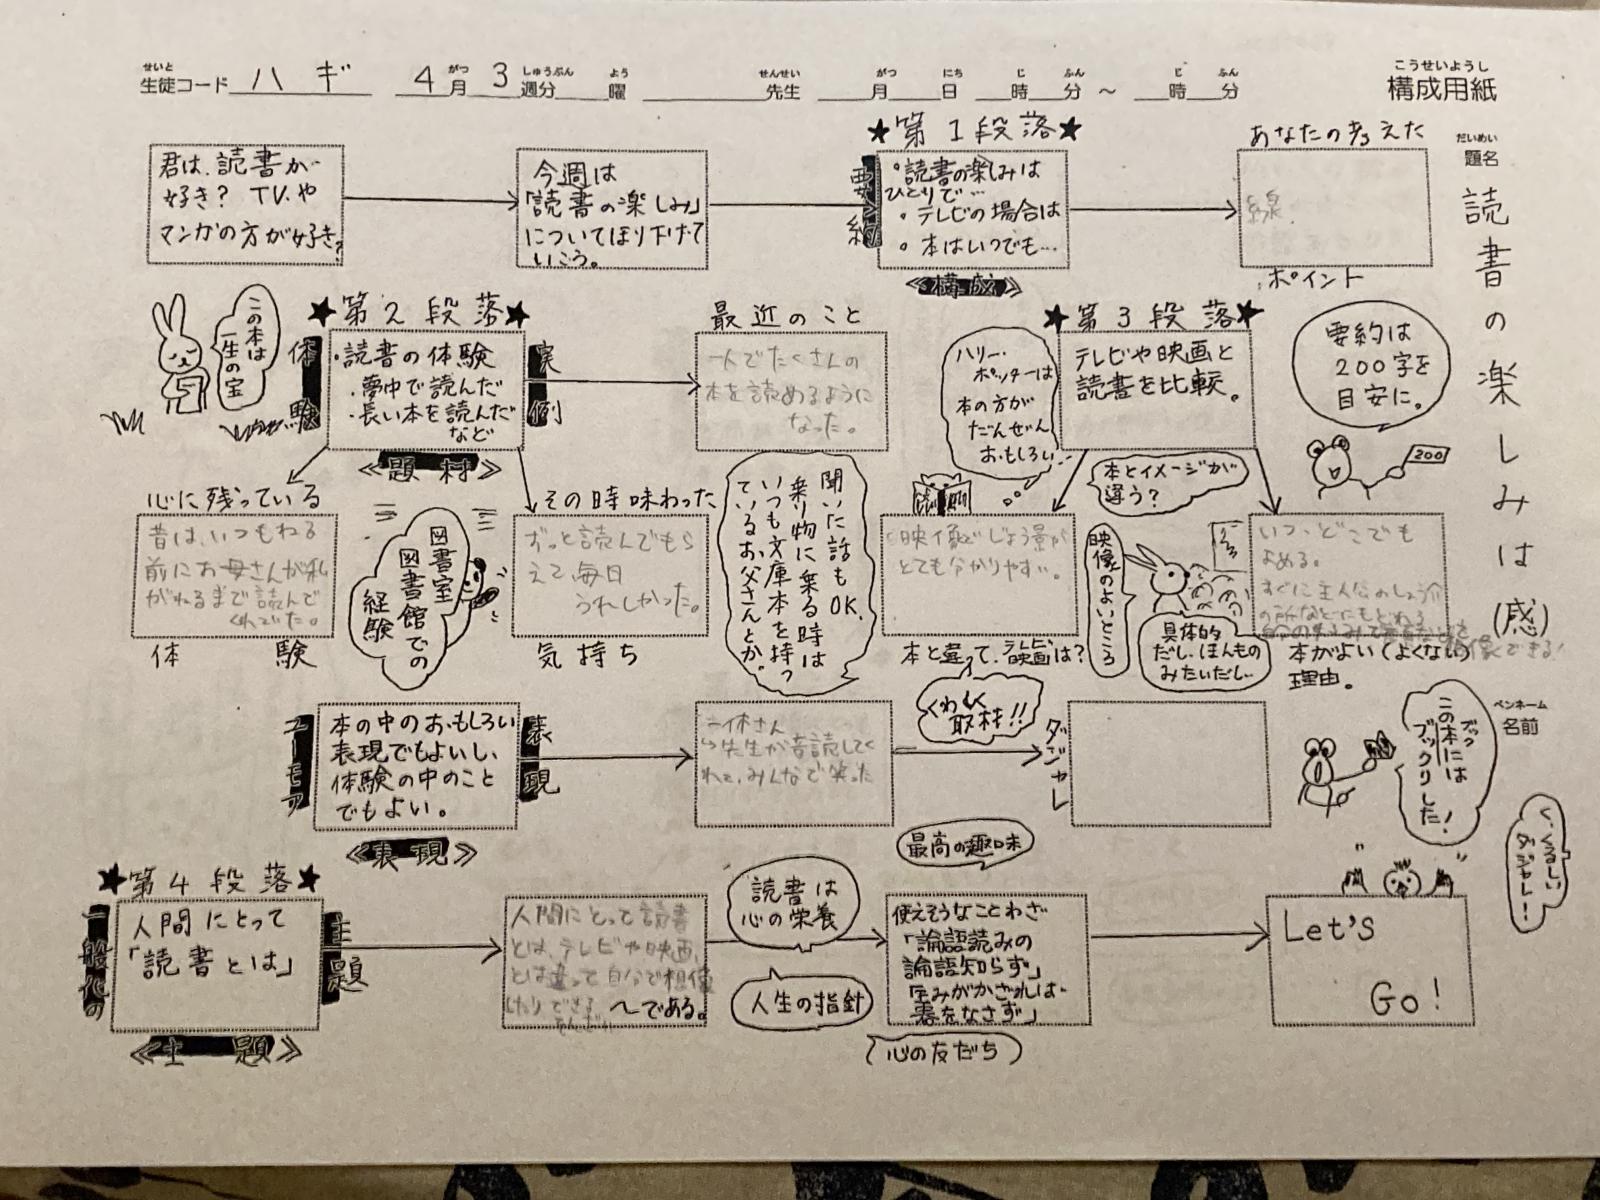 せいと がつ しゅうぶん よう せんせい がつ にち じ ふん じ ふん
生徒コード ハギ 4月 3週分 曜 先生 月 日 時 分 ～ 時 分
こうせいようし
構成用紙
だいめい
題名
読書の楽しみは(感)
君は、読書が
好き? TVや
マンガの方が好き?
今週は
「読書の楽しみ」
についてほり下げて
いこう。
★第1段落★
要約
・読書の楽しみは
ひとりで…
・テレビの場合は
・本はいつでも…
≪構成≫
あなたの考えた
線
ポイント
この本は
一生の宝
★第2段落★
体験
・読書の体験
・夢中で読んだ
・長い本を読んだ
など
実例
≪題材≫
最近のこと
一人でたくさんの
本を読めるように
なった。
ハリー・
ポッターは
本の方が
だんぜん
おもしろい
★第3段落★
テレビや映画と
読書を比較。
要約は
200字を
目安に。
200
心に残っている
昔は、いつもねる
前にお母さんが私
がねるまで読んで
くれていた。
体験
図書室
図書館での
経験
その時味わった
ずっと読んでもら
えて毎日
うれしかった。
気持ち
聞いた話もOK.
乗り物に乗る時は
いつも文庫本を持っ
ているお父さんとか。
本とイメージが
違う?
映像でじょう景が
とても分かりやすい。
本と違って、映画は?
映像のよいところ
具体的
だし、ほんもの
みたいだし…
いつ、どこでも
よめる。
すぐに主人公のしょう介
の所などにもどれる
できる!
本がよい(よくない)
理由。
ユーモア
本の中のおもしろい
表現でもよいし、
体験の中のこと
でもよい。
表現
≪表現≫
一休さん
↳先生が音読してく
れて、みんなで笑った
くわしく
取材!!
ダジャレ
ペンネーム
名前
この本には
ブック
ブックリした!
く、くるしい
ダジャレー!
★第4段落★
一般化の
人間にとって
「読書とは」
主題
≪主題≫
人間にとって読書
とは、テレビや映画、
とは違って自分で想像
できる
～である。
最高の趣味
読書は
心の栄養
人生の指針
使えそうなことわざ
「論語読みの
論語知らず」
「玉みがかざれば
器をなさず」
心の友だち
Let's
Go!